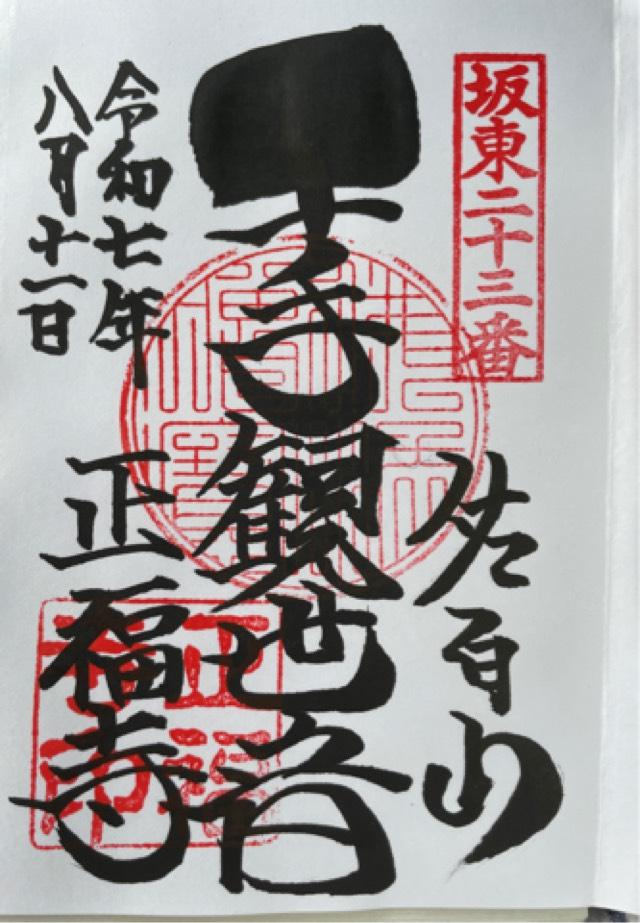 坂東二十三番
佐白山
千手観世音
令和七年
八月十一日
正福寺
正福寺印